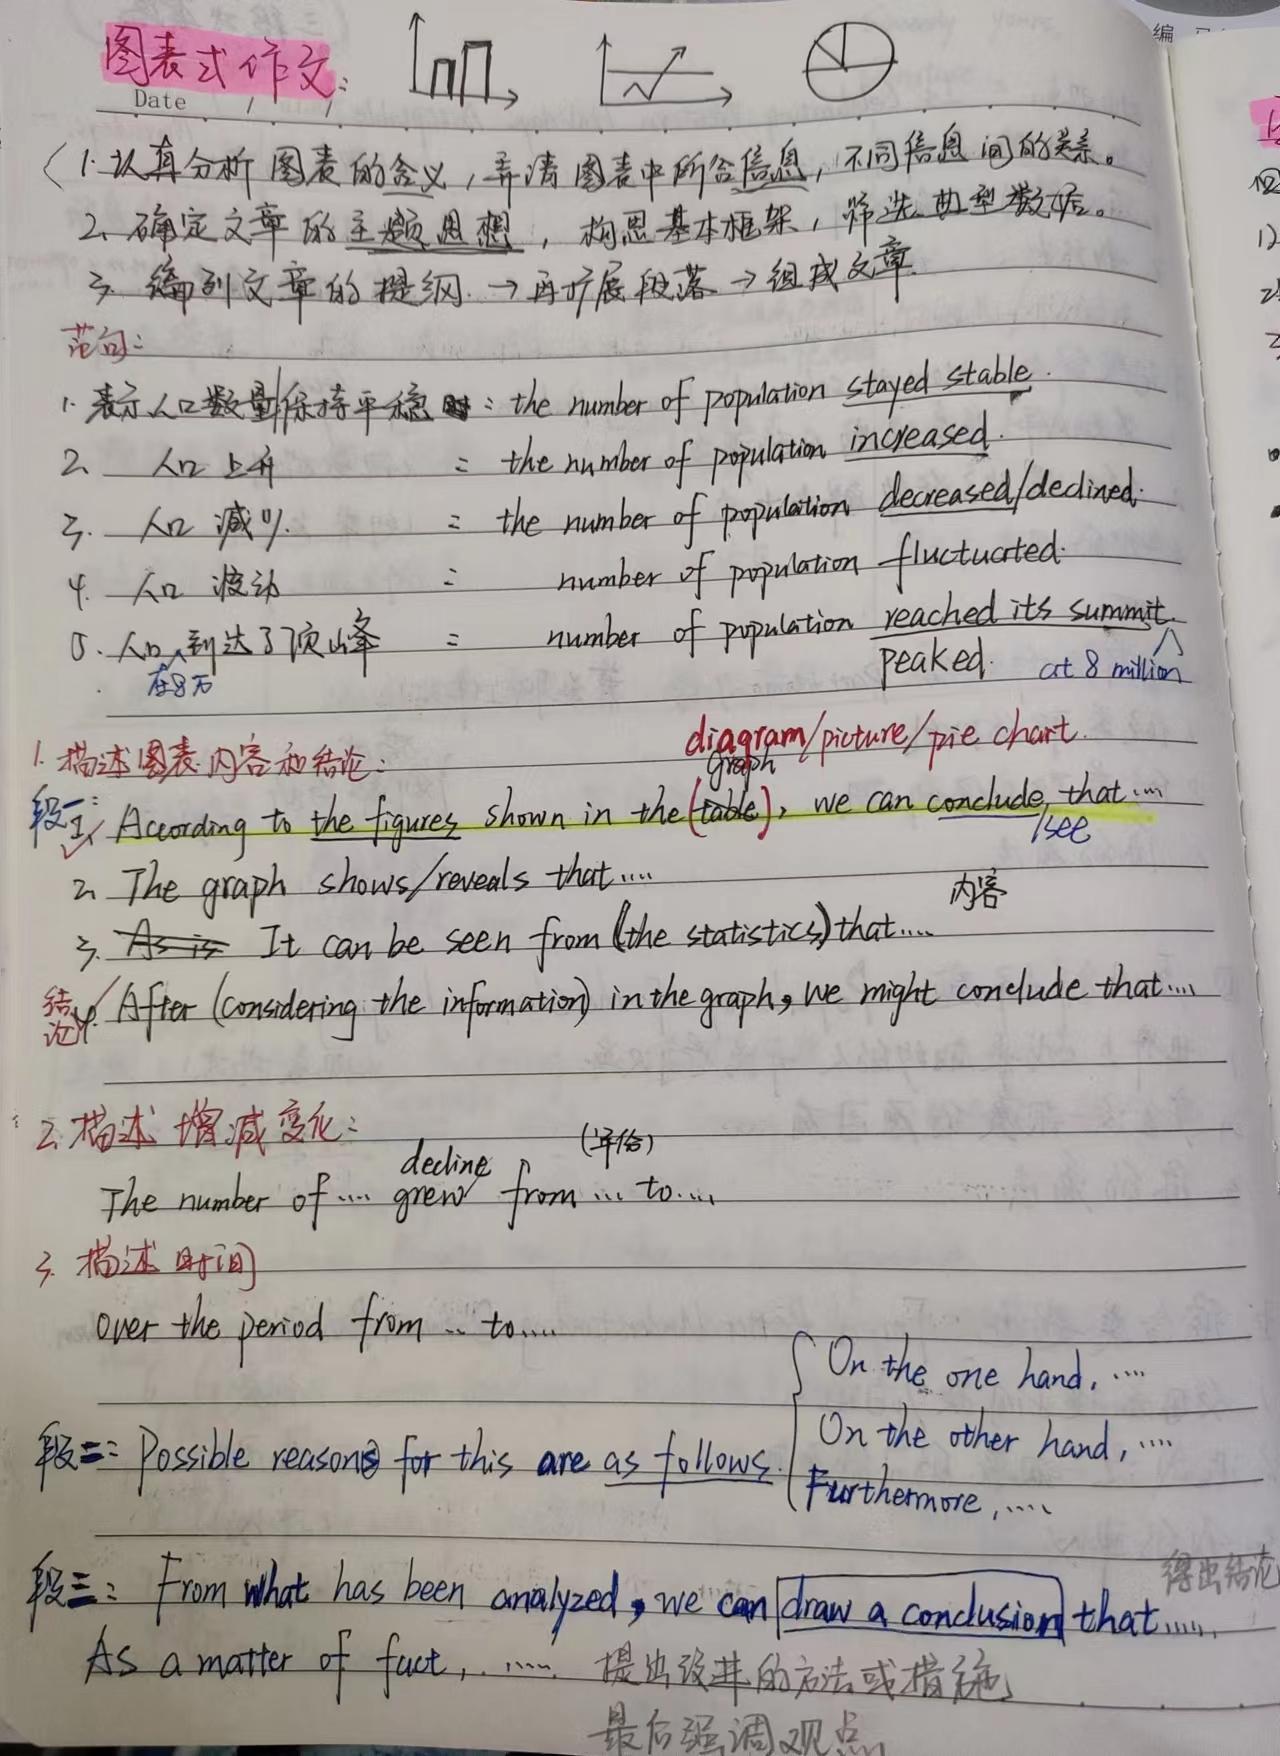 图表式作文:
Date
1. 认真分析图表的含义，弄清图表中所含信息，不同信息间的关系。
2. 确定文章的主题思想，构思基本框架，筛选典型数据。
3. 编列文章的提纲. → 再扩展段落 → 组成文章.
范句:
1. 表示人口数量保持平稳 : the number of population stayed stable.
2. 人口上升 = the number of population increased.
3. 人口减少. = the number of population decreased/declined.
4. 人口波动 = number of population fluctuated.
5. 人口到达了顶峰 = number of population reached its summit.
在8万 peaked. at 8 million
1. 描述图表内容和结论:
diagram/picture/pie chart.
graph
段一: 1. According to the figures shown in the (table), we can conclude that....
/see
2. The graph shows/reveals that....
内容
3. As is It can be seen from (the statistics) that....
结论 4. After (considering the information) in the graph, we might conclude that....
2. 描述增减变化:
decline
The number of .... grew from ... to....
3. 描述时间
Over the period from .. to.....
段二: Possible reasons for this are as follows.
On the one hand, ....
On the other hand, ....
Furthermore, ....
得出结论
段三: From what has been analyzed, we can draw a conclusion that......
As a matter of fact, ...... 提出改进的方法或措施
最后强调观点